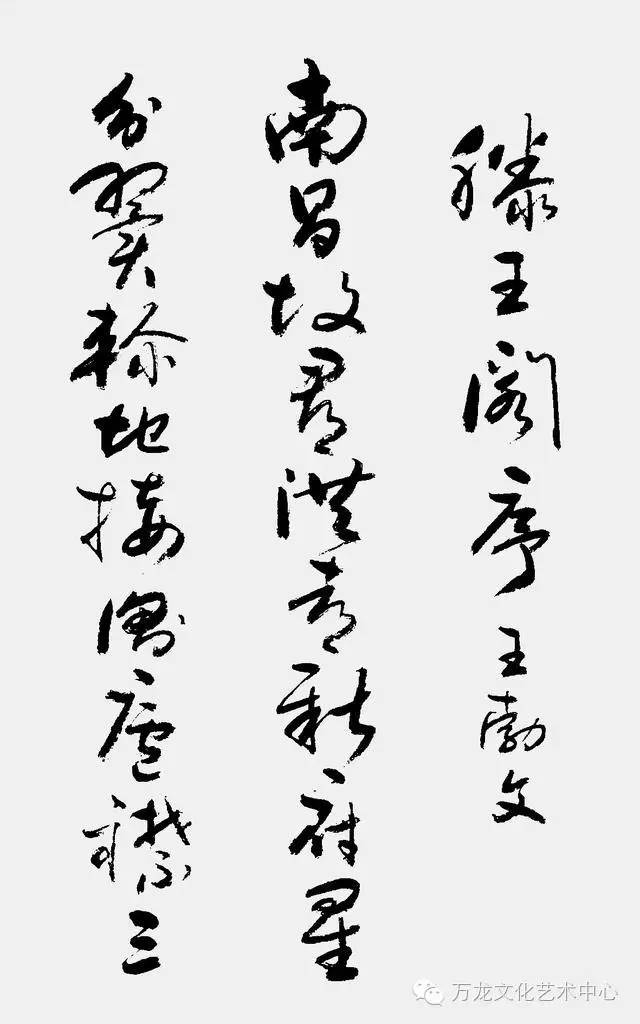 滕王閣序王勃文
南昌故郡洪都新府星
分翼軫地接衡廬襟三
万龙文化艺术中心